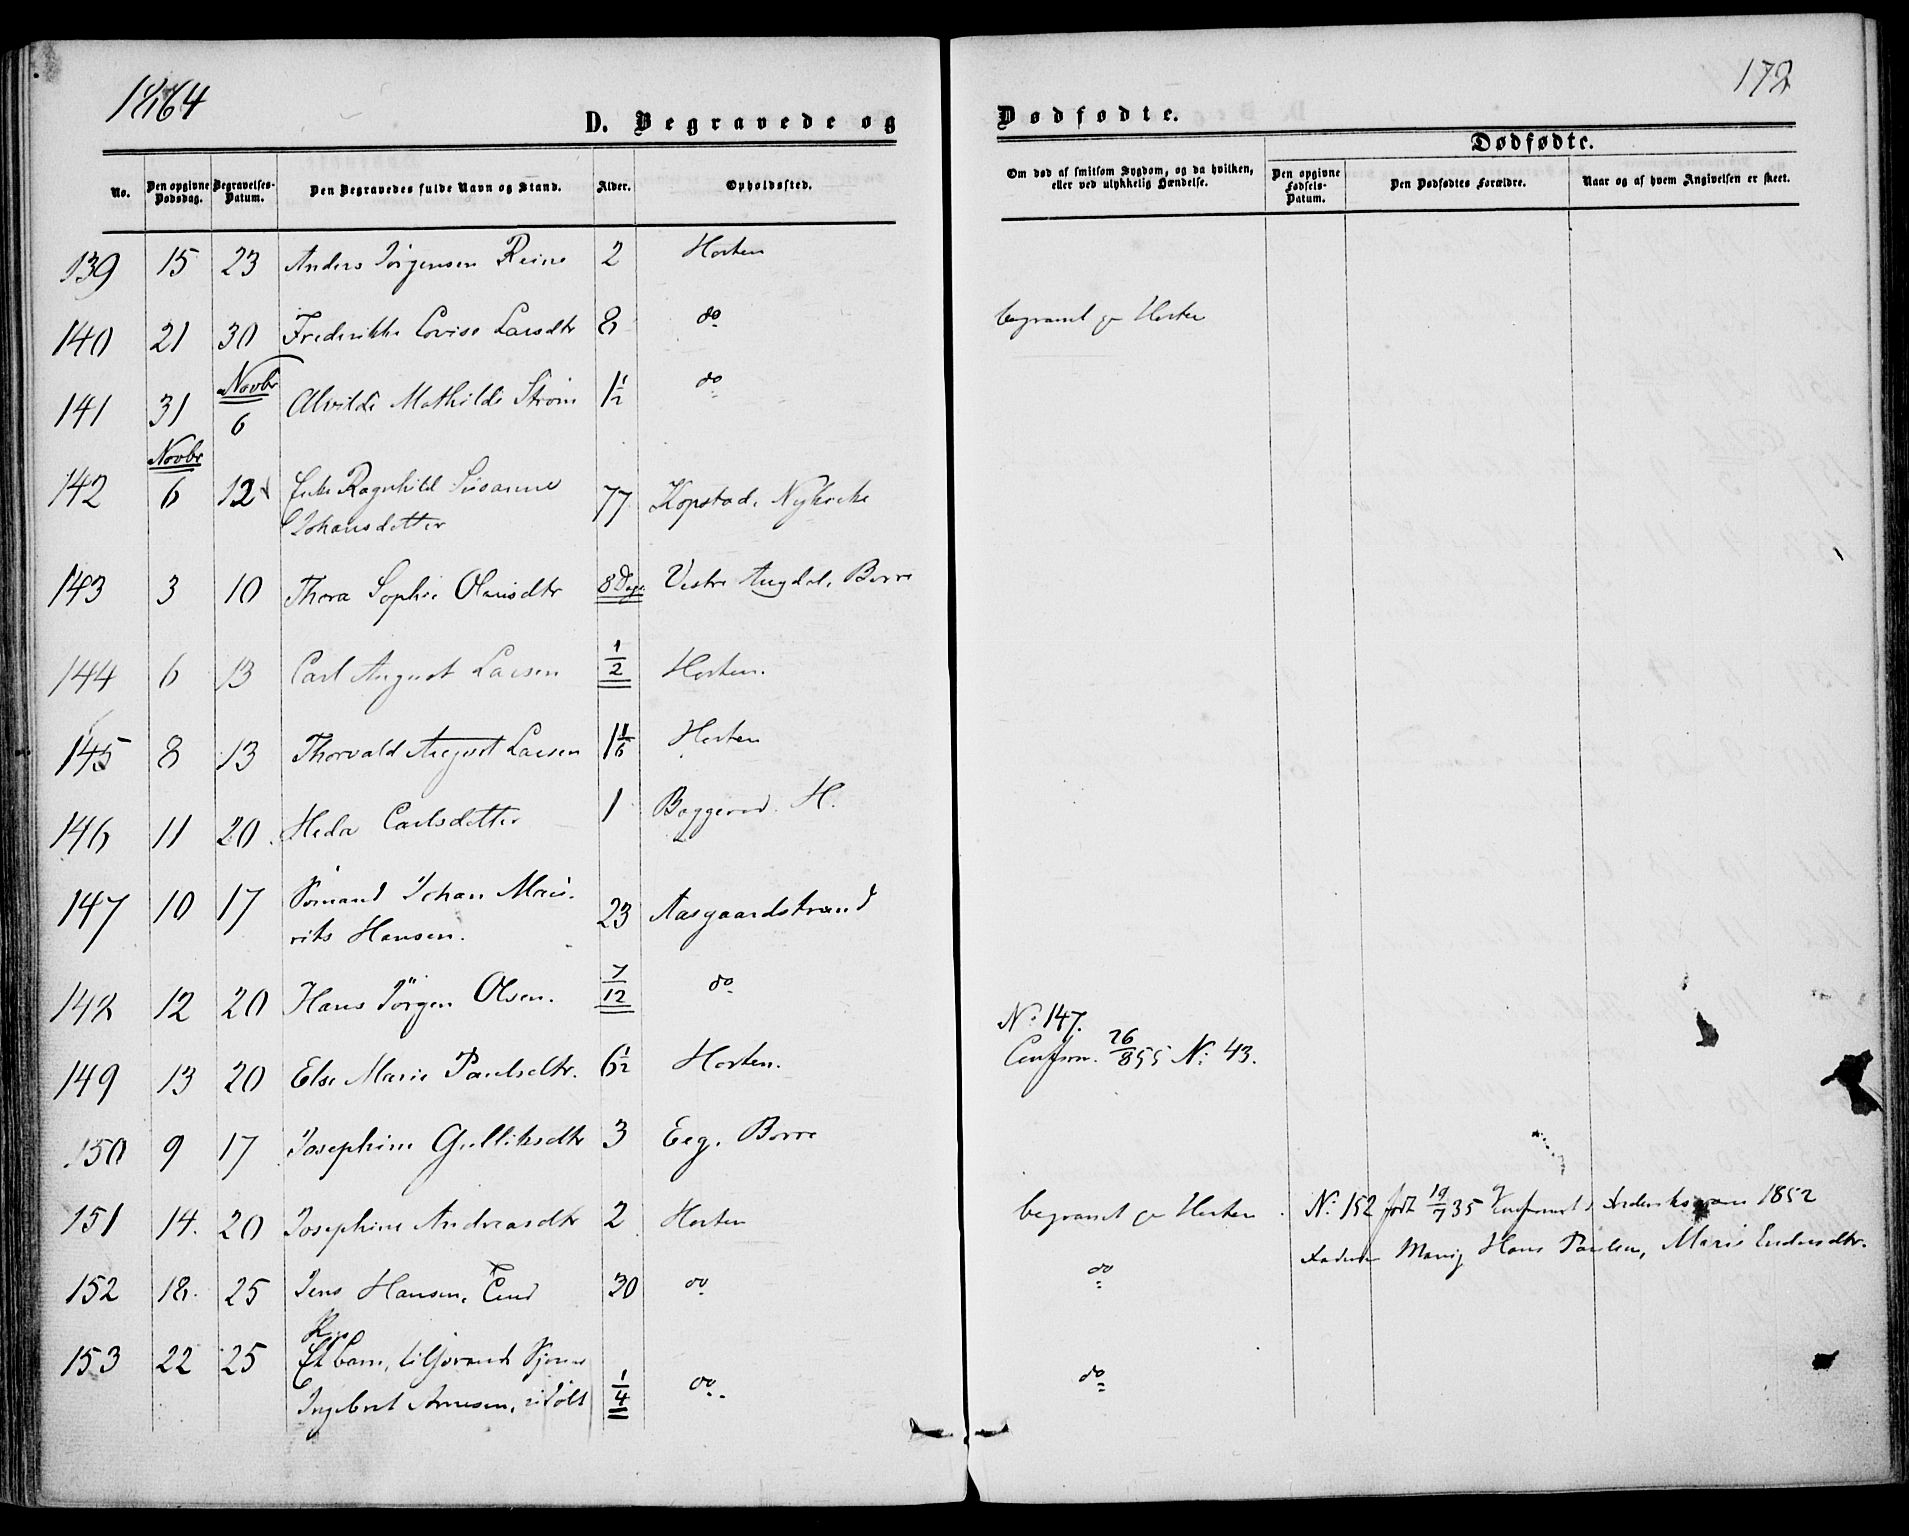 1864
172
D. Begravede og
Dødfødte.
No.
Den opgivne Dødsdag.
Begravelses-Datum.
Den Begravedes fulde Navn og Stand.
Alder.
Opholdssted.
Om død af smitsom Sygdom, og da hvilken, eller ved ulykkelig Hændelse.
Dødfødte.
Den opgivne Fødsels-Datum.
Den Dødfødtes Forældre.
Naar og af hvem Angivelsen er skeet.
139 15 23 Anders Jörgensen Reine 2 Horten
140 21 30 Frederikke Lovise Larsdtr 8 do begravet Horten
Novbr
141 31 6 Alvilde Mathilde Ström 1½ do
Novbr
142 6 12 Enke Ragnhild Susanne 77 Kopstad, Nykirke
Johansdatter
143 3 10 Thora Sophie Olausdtr 8 Dage Vestre Borre
144 6 13 Carl August Larsen 1/2 Horten.
145 8 13 Thorvald August Larsen 1 1/6 Horten
146 11 20 Carlsdatter 1 H.
147 10 17 Sömand Johan Mau- 23 Aasgaardstrand
rits Hansen.
148 12 20 Hans Jörgen Olsen. 7/12 do
No 147.
149 13 20 Else Marie Paulsdtr. 6½ Horten. 26/855 No 43.
150 9 17 Josephine Gulliksdtr 3 Eeg, Borre
151 14. 20 Josephine Andreasdtr 2 Horten begravet Horten No 152 født 19/7 35 1852
Hans Paulsen, Maria
152 18. 25 Jens Hansen, 30 do do
153 22 25 Et barn, Ingebret Arnesen, 1/4 do do